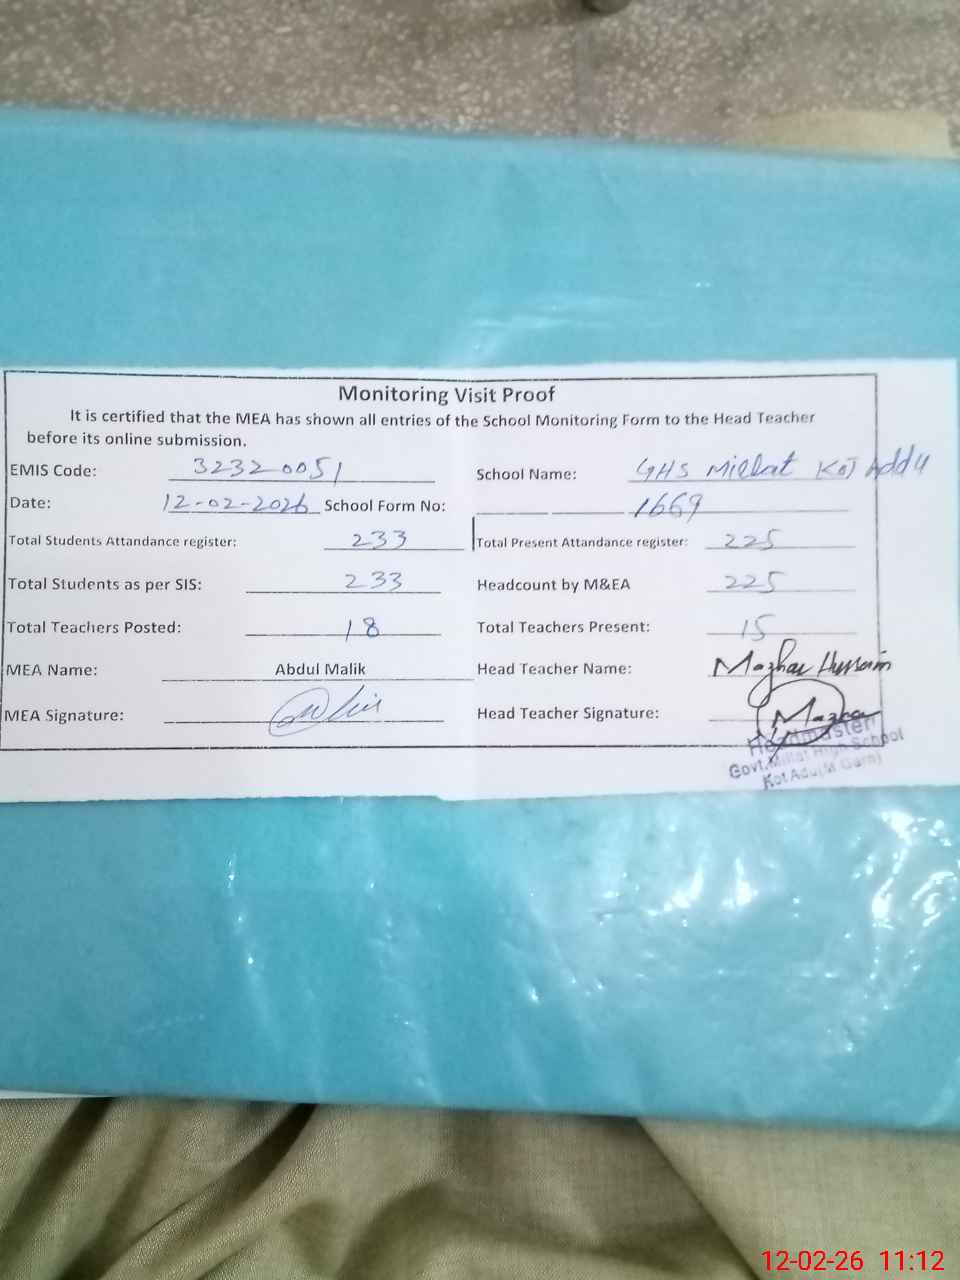 Monitoring Visit Proof
It is certified that the MEA has shown all entries of the School Monitoring Form to the Head Teacher
before its online submission.
EMIS Code: 32320051 School Name: GHS Millat Kot Addu
Date: 12-02-2026 School Form No: 1669
Total Students Attandance register: 233 Total Present Attandance register: 225
Total Students as per SIS: 233 Headcount by M&EA 225
Total Teachers Posted: 18 Total Teachers Present: 15
MEA Name: Abdul Malik Head Teacher Name: Mazhar Hussain
MEA Signature: Head Teacher Signature: Mazhar
Headmaster
Govt. Millat High School
Kot Adu (M Garh)
12-02-26 11:12